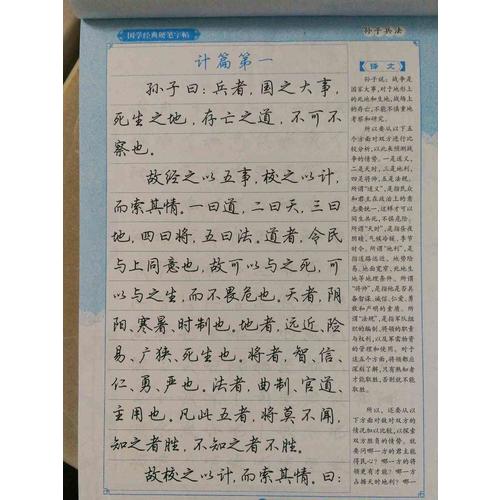 国学经典硬笔字帖
孙子兵法
计篇第一
孙子曰：兵者，国之大事，
死生之地，存亡之道，不可不
察也。
故经之以五事，校之以计，
而索其情。一曰道，二曰天，三曰
地，四曰将，五曰法。道者，令民
与上同意也，故可以与之死，可
以与之生，而不畏危也。天者，阴
阳、寒暑、时制也。地者，远近、险
易、广狭、死生也。将者，智、信、
仁、勇、严也。法者，曲制、官道、
主用也。凡此五者，将莫不闻，
知之者胜，不知之者不胜。
故校之以计，而索其情。曰：
【译文】
孙子说：战争是
国家大事，对于地形上
的死地和生地，战场上
的存亡，不能不慎重地
考察和研究。
所以要从以下五
个方面对双方进行比
较分析，以此来预测战
争的情势。一是道义，
二是天时，三是地利，
四是将帅，五是法规。
所谓“道义”，是指民众
和君主在政治上的意
志要统一，这样才可以
同生共死，不惧危险。
所谓“天时”，是指昼夜
阴晴、气候冷暖、季节
时令。所谓“地利”，是
指道路远近、地势险
易、地面宽窄、死地生
地等地理条件。所谓
“将帅”，是指他是否具
备智谋、诚信、仁爱、勇
敢和严明的素质。所
谓“法规”，是指军队组
织的编制，将领的职责
与权利，以及军需物资
的管理和使用。对于
这五个方面，将领都应
深刻了解，只有熟知者
才能取胜，否则就不能
取胜。
所以，还要从以
下方面对敌对双方的
情况加以比较，以探索
双方胜负的情势。就
要问哪一方的君主能
得民心？哪一方的将
领更有才能？哪一方
占据天时地利？哪一